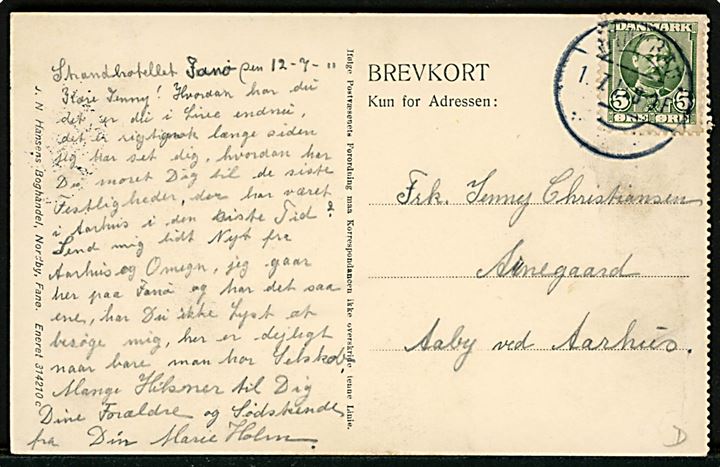 Strandhotellet Fanø den 12-7-11
Kære Jenny! Hvordan har du
det er du i Live endnu,
det er rigtignok lange siden
jeg har set dig, hvordan har
Du moret Dig til de siste
Festligheder, der har været
i Aarhus i den siste Tid?
Send mig lidt Nyt fra
Aarhus og Omegn, jeg gaar
her paa Fanø og har det saa
ene, har Du ikke Lyst at
besøge mig, her er dejligt
naar bare man har Selskab.
Mange Hilsner til Dig
Dine Forældre og Sødskende
fra Din Marie Holm.
J. N. Hansens Boghandel, Nordby, Fanø. Eneret 314210 c
Ifølge Postvæsenets Forordning maa Korrespondancen ikke overskride denne Linie.
BREVKORT
Kun for Adressen:
DANMARK
5 5
ØRE ØRE
Frk. Jenny Christiansen
Arnegaard
Aaby ved Aarhus.
D